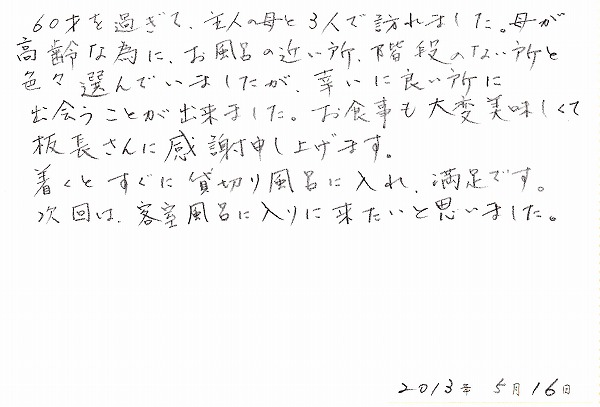 60才を過ぎて、主人の母と3人で訪れました。母が
高齢な為に、お風呂の近い所、階段のない所と
色々選んでいましたが、幸いに良い所に
出会うことが出来ました。お食事も大変美味しくて
板長さんに感謝申し上げます。
着くとすぐに貸切り風呂に入れ、満足です。
次回は、客室風呂に入りに来たいと思いました。
2013年 5月16日